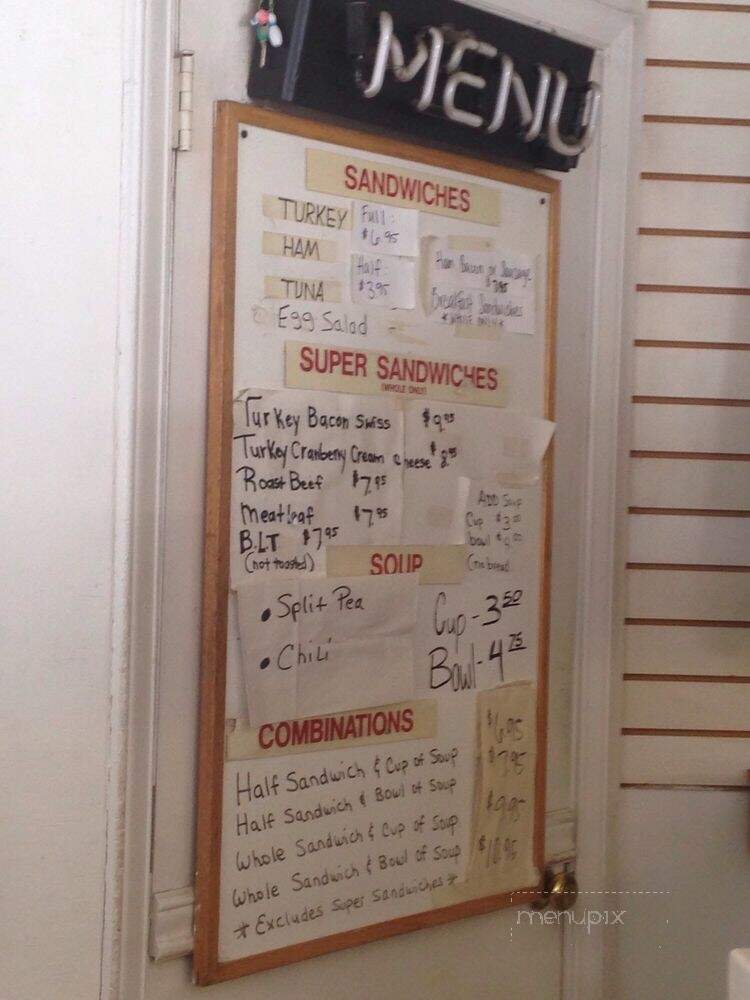 MENU
SANDWICHES
TURKEY
HAM
TUNA
Egg Salad
Full:
$6.95
Half:
$3.95
Ham Bacon or Sausage
$7.95
Breakfast Sandwiches
*WHOLE ONLY*
SUPER SANDWICHES
(WHOLE ONLY)
Turkey Bacon Swiss $9.95
Turkey Cranberry Cream cheese $8.95
Roast Beef $7.95
Meatloaf $7.95
B.L.T $7.95
(not toasted)
ADD Soup
Cup $3.00
bowl $4.00
(no bread)
SOUP
• Split Pea
• Chili
Cup - 3.50
Bowl - 4.75
COMBINATIONS
Half Sandwich & Cup of Soup $6.95
Half Sandwich & Bowl of Soup $7.95
Whole Sandwich & Cup of Soup $9.95
Whole Sandwich & Bowl of Soup $10.95
* Excludes Super Sandwiches *
menupix